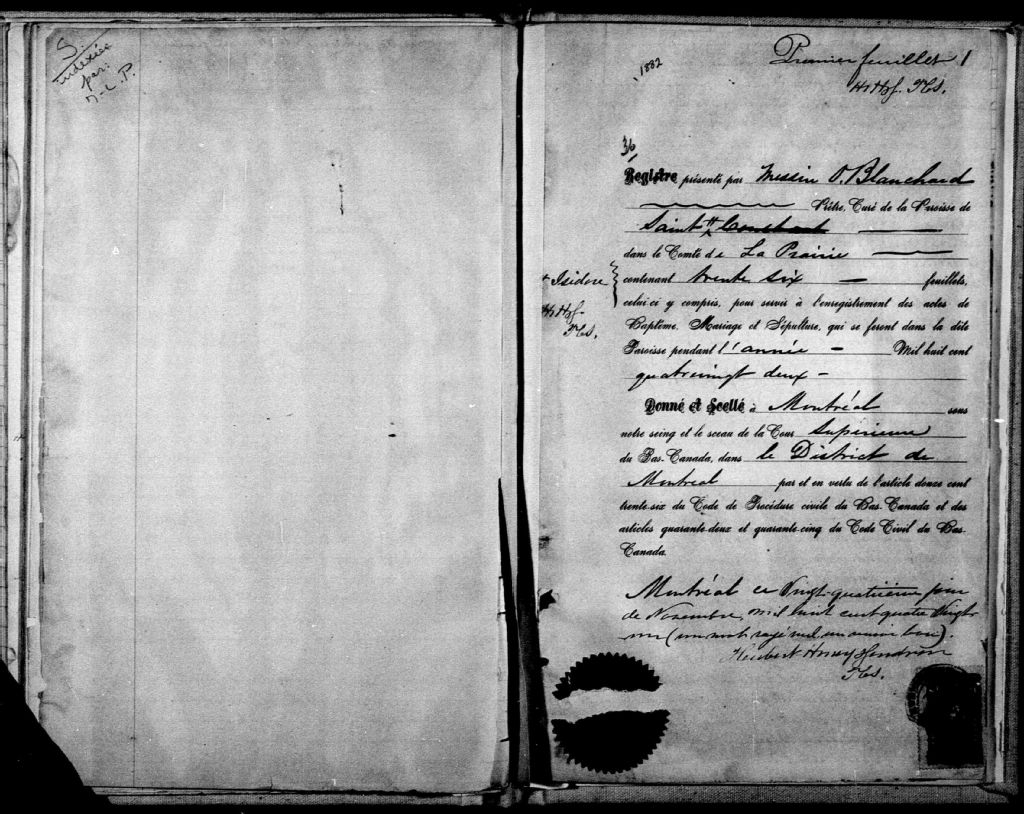 S.
indexée
par:
M-L. P.
1882
Premier feuillet 1
36
Registre présenté par Messire O. Blanchard
Prêtre, Curé de la Paroisse de
Saint Constant
dans le Comté de La Prairie
+ Isidore
contenant trente six feuillets,
celui-ci y compris, pour servir à l'enregistrement des actes de
Baptême, Mariage et Sépulture, qui se feront dans la dite
Paroisse pendant l'année Mil huit cent
quatrevingt deux -
Donné et Scellé à Montréal sous
notre seing et le sceau de la Cour Supérieure
du Bas-Canada, dans le District de
Montreal par et en vertu de l'article douze cent
trente-six du Code de Procédure civile du Bas-Canada et des
articles quarante-deux et quarante-cinq du Code Civil du Bas-
Canada.
Montréal ce Vingt-quatrième jour
de Novembre, mil huit cent quatre Vingt
un (un mot rayé nul, un renvoi bon).